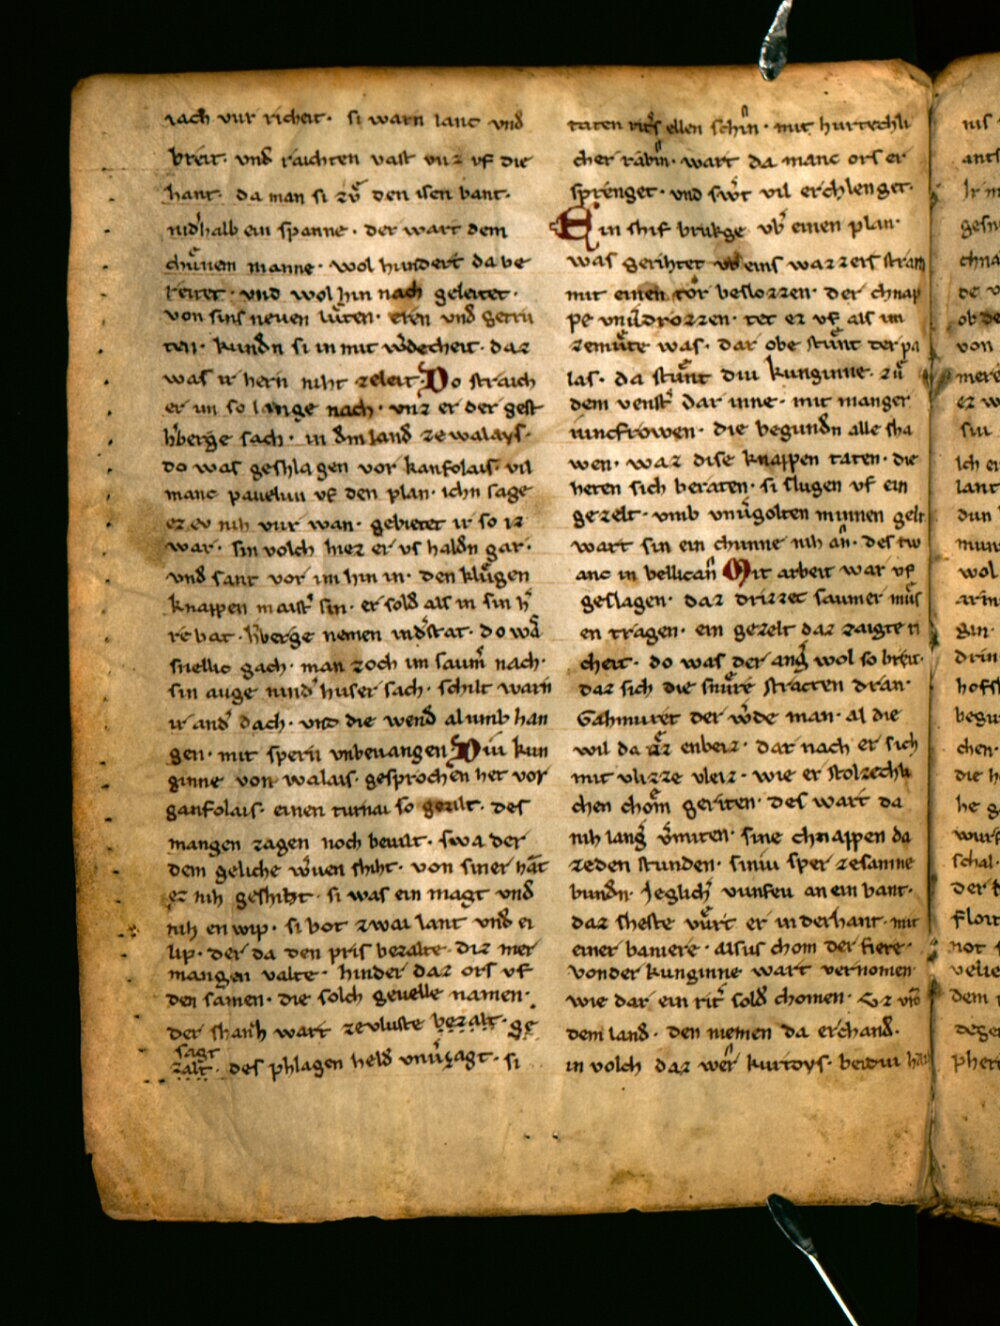 rach vur richeit · si warn lanc vnd
breit · vnd raichten vast vnz vf die
hant · da man si zů den isen bant ·
nidhalb ein spanne · der wart dem
chůnem manne · wol hundert da be
reitet · vnd wol hin nach geleitet ·
von sins neuen lůten · eren vnd getri
ten · kundn si in mit wdecheit · daz
was ir hern niht zeleit · Do straich
er im so lange nach · vnz er der gest
hberge sach · in dm land ze walays ·
do was geshlagen vor kanfolais · vil
manc paueliun vf den plan · ichn sage
ez ev nih vur wan · gebietet ir so iz
war · sin volch hiez er vf haldn gar ·
vnd sant vor im hin in · den klůgen
knappen maist sin · er sold als in sin h
re bat · hberge nemen indstat · do wa
snellic gach · man zoch im saum nach ·
sin auge nind huser sach · schilt warn
ir and dach · vnd die wend al umb han
gen · mit spern vmbeuangen Diu kun
ginne von walais · gesprochen het vor
ganfolais · einen turnai so gezilt · des
mangen zagen noch beuilt · swa der
dem geliche wuen shiht · von siner hat
ez nih geshiht · si was ein magt vnd
nih en wip · si bot zwai lant vnd ei
lip · der da den pris bezalte · diz mer
mangen valte · hinder daz ors vf
den samen · die solch geuelle namen ·
der shanh wart ze vluste bezalt · ge
sagt
zalt · des phlagen held vnuzagt · si
taten rits ellen schin · mit hurtechli
cher rabin · wart da manc ors er
sprenget · vnd swt vil erchlenget ·
Ein shif brukge vb einen plan ·
was gerihtet vb eins wazzers stram
mit einem tor beslozzen · der chnap
pe vnudrozzen · tet ez vf als im
zemůte was · dar obe stůnt der pa
las · da stůnt diu kunginne · zů
dem venst dar inne · mit manger
iuncfrowen · die begundn alle sha
wen · waz dise knappen taten · die
heten sich beraten · si slugen vf ein
gezelt · vmb vnugolten minnen gelt
wart sin ein chunne nih an · des tw
anc in bellican Mit arbeit war vf
geslagen · daz drizzec saumer můs
en tragen · ein gezelt daz zaigte ri
cheit · do was der ang wol so breit ·
daz sich die snůre stracten dran ·
Gahmuret der wde man · al die
wil da uz enbeiz · dar nach er sich
mit vlizze vleiz · wie er stolzechli
chen chom geriten · des wart da
nih lang vmiten · sine chnappen da
zeden stunden · siniu sper zesamne
bundn · Jeglich vunfeu an ein bant ·
daz sheste vůrt er in der hant · mit
einer baniere · alsus chom der fiere ·
von der kunginne wart vernomen
wie dar ein rit sold chomen · Ez vzo
dem land · den niemen da erchand ·
in volch daz wer kurtoys · beidiu